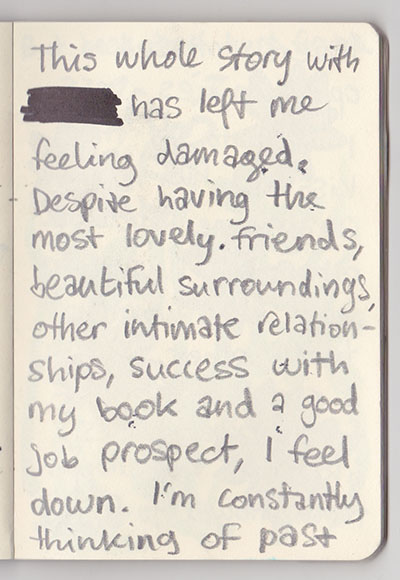 This whole story with
has left me
feeling damaged.
Despite having the
most lovely. friends,
beautiful surroundings,
other intimate relation-
ships, success with
my book and a good
job prospect, I feel
down. I'm constantly
thinking of past